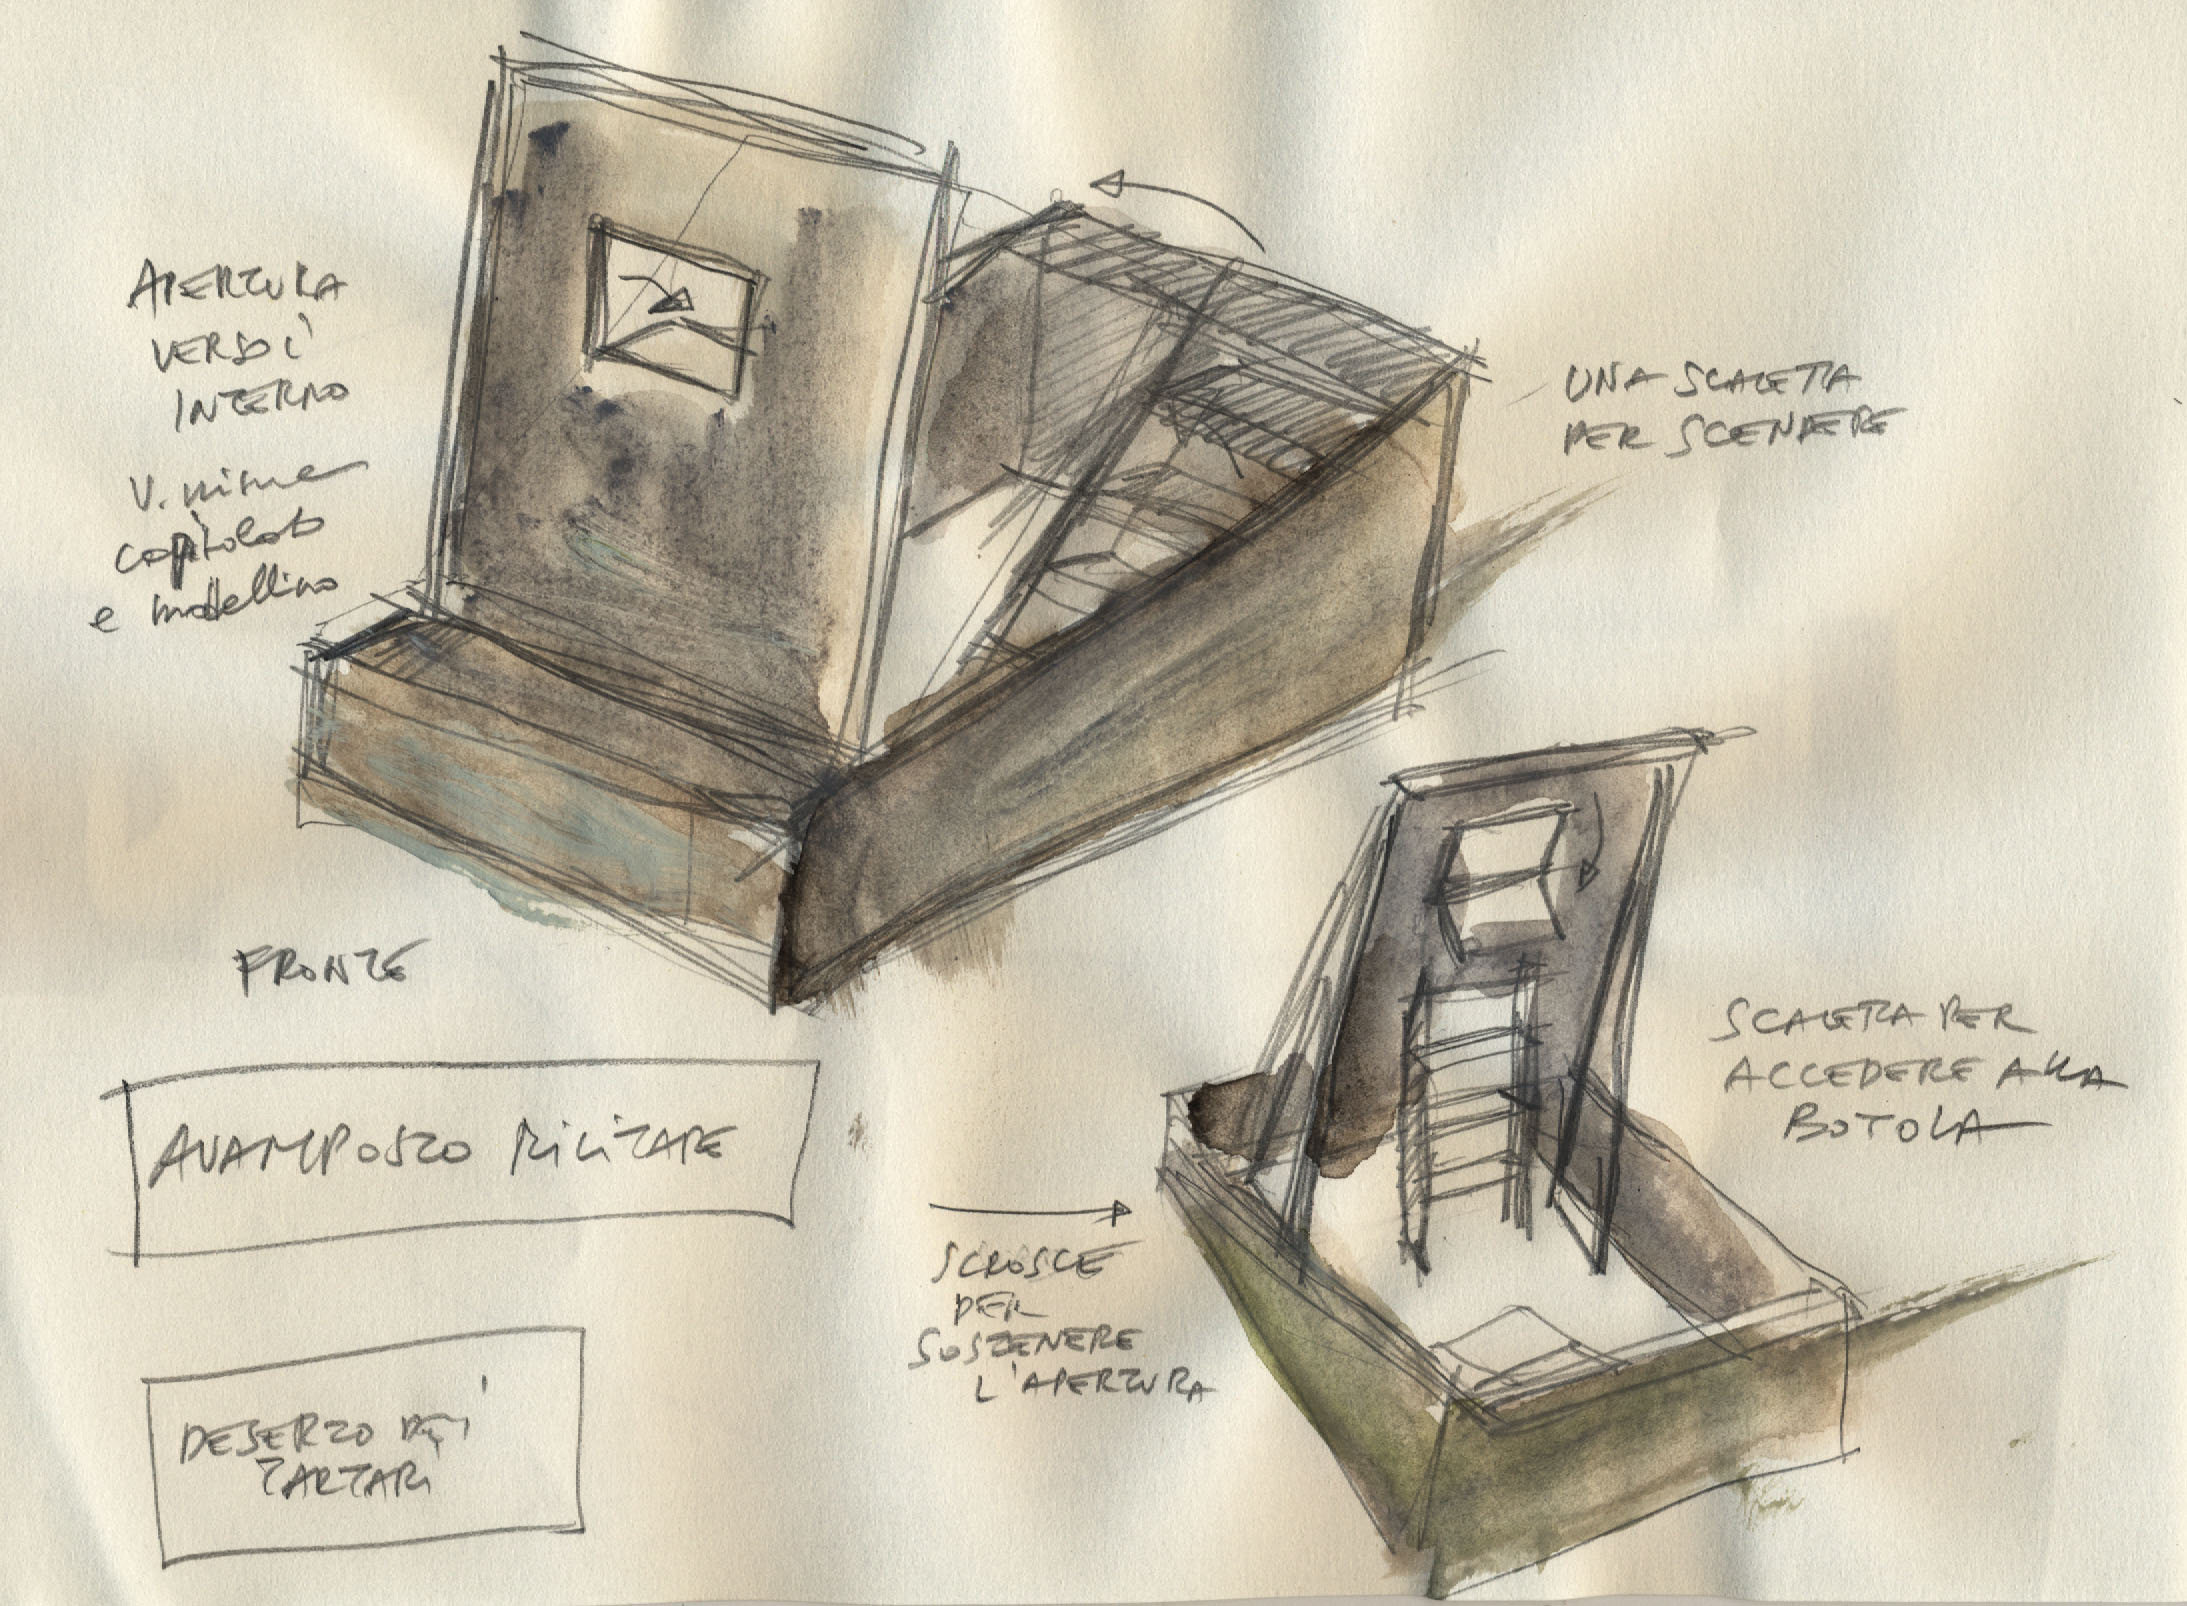 APERTURA
VERSO L'
INTERNO
V. misure
capitolato
e modellino
UNA SCALETTA
PER SCENDERE
FRONTE
AVAMPOSTO MILITARE
SCALETTA PER
ACCEDERE ALLA
BOTOLA
SCROSCE
PER
SOSTENERE
L'APERTURA
DESERTO DEI
TARTARI